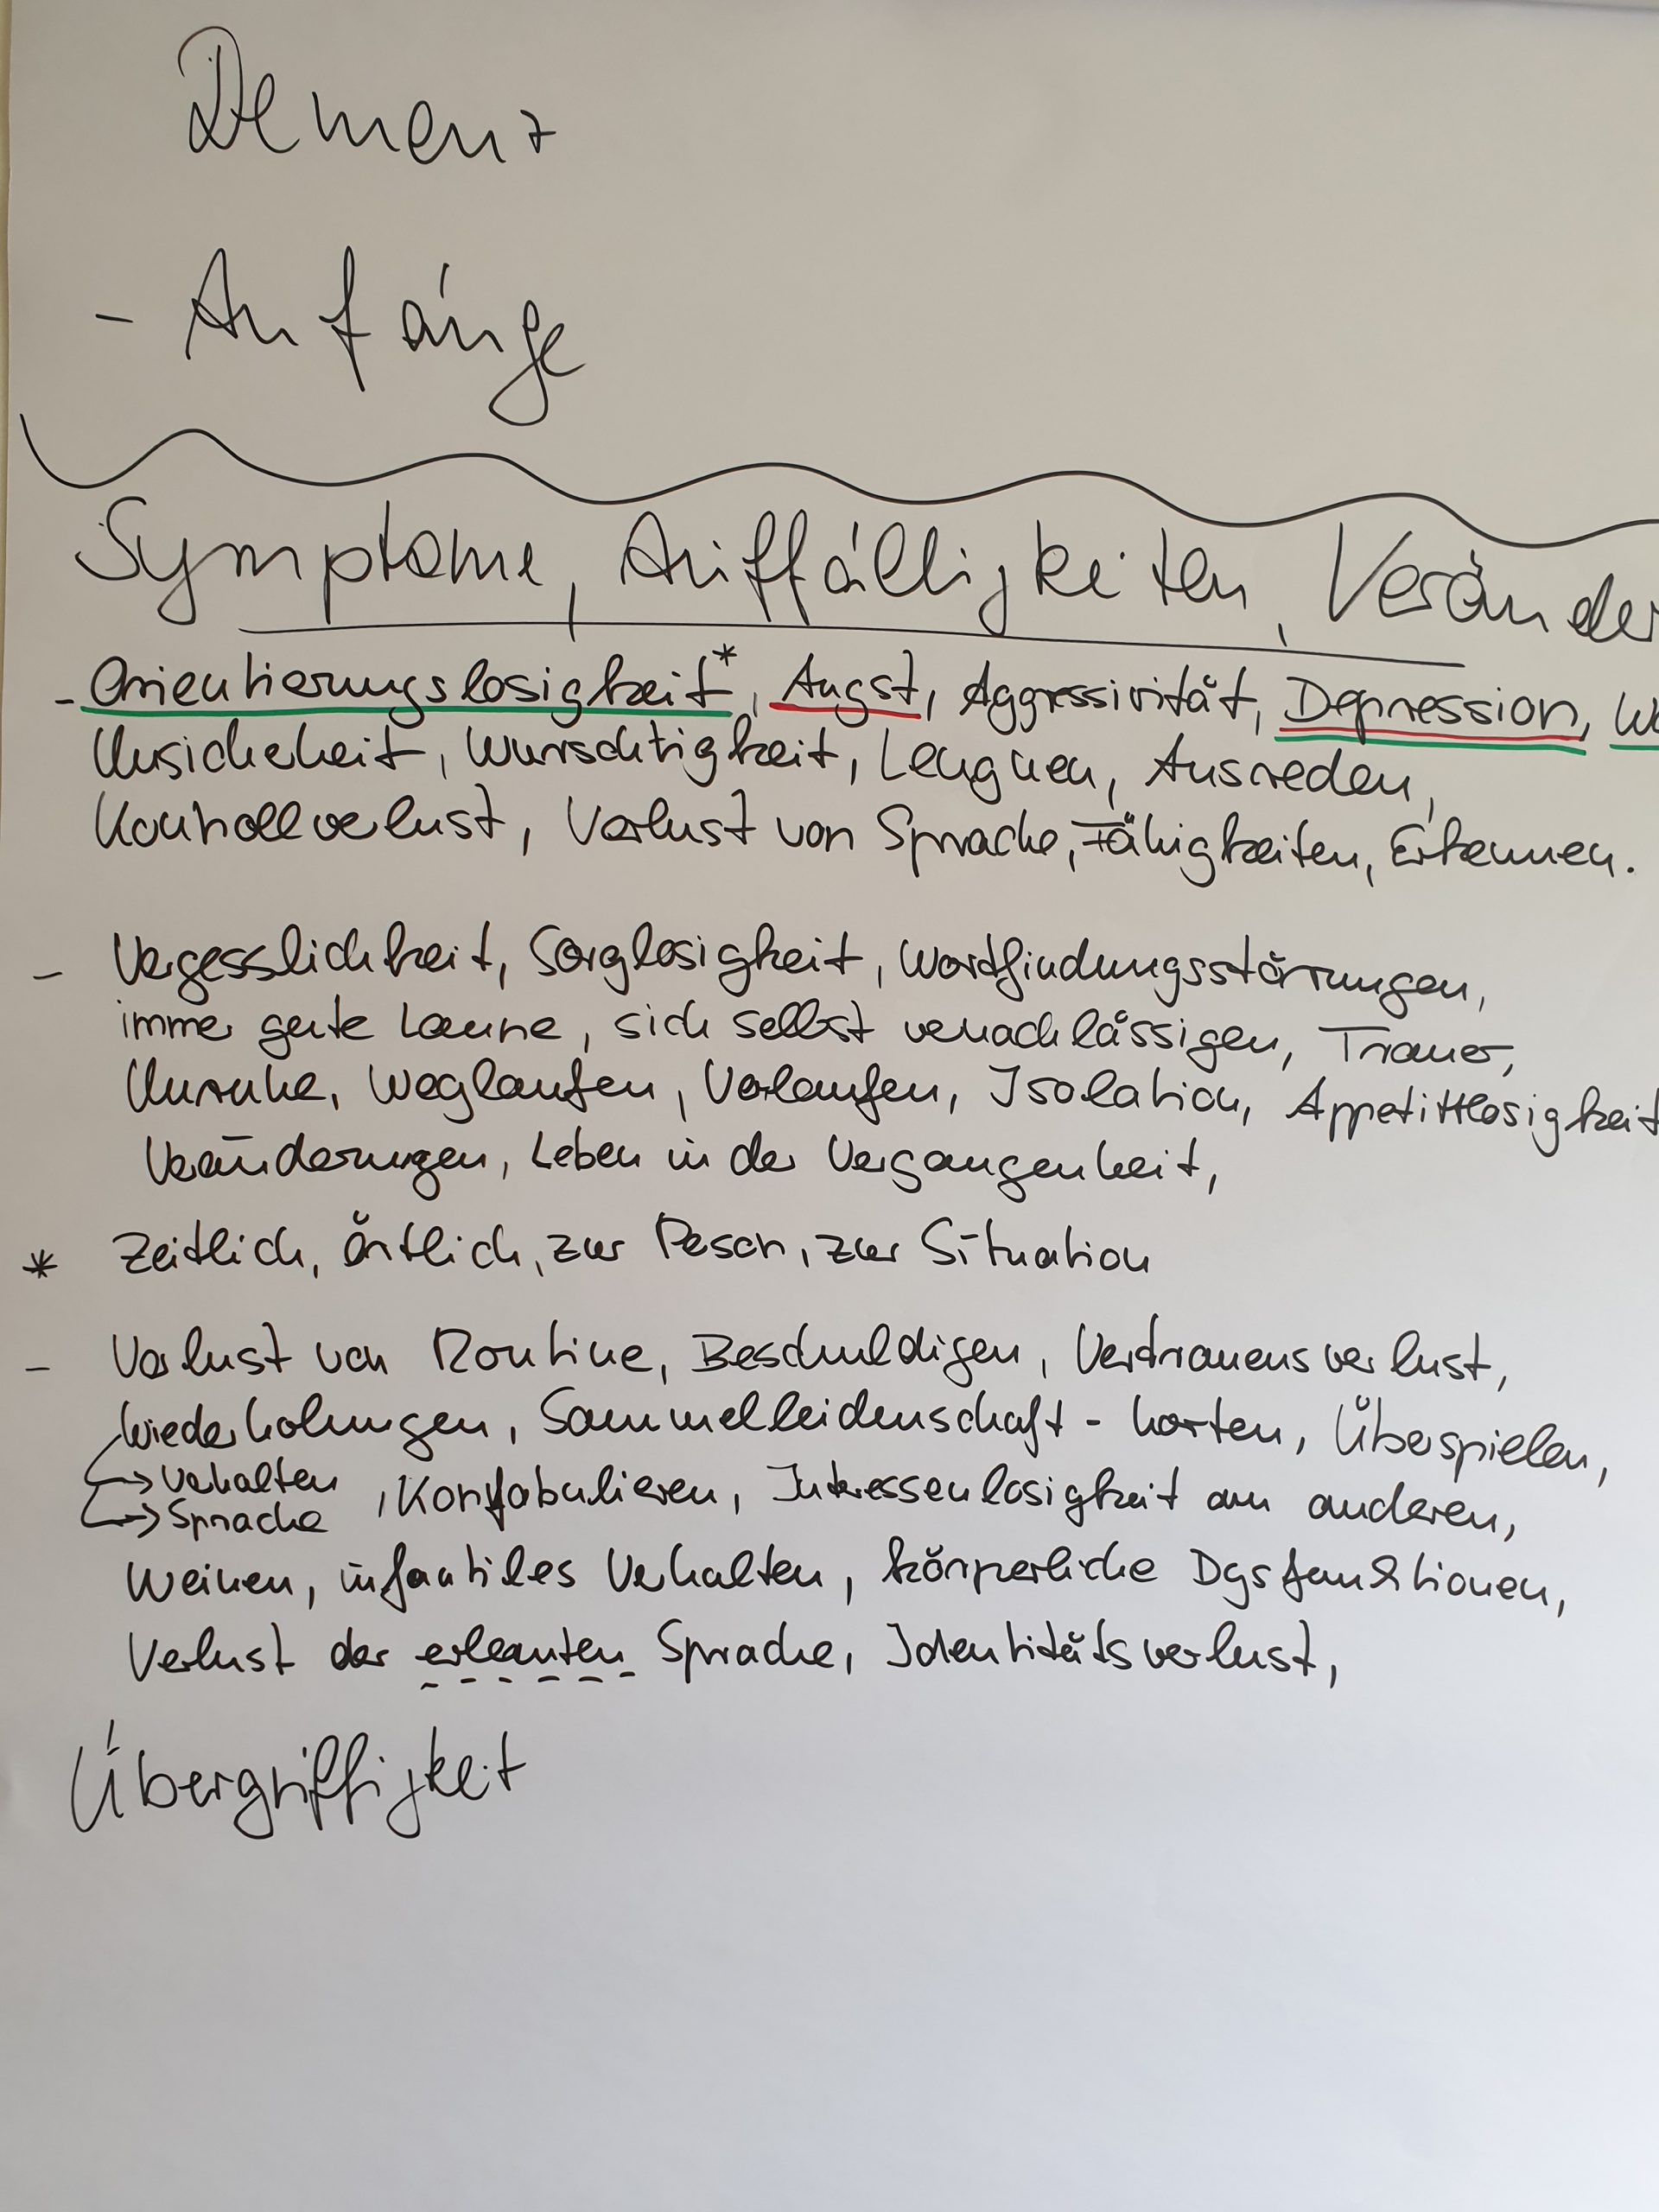 Demenz
- Anfänge
Symptome, Auffälligkeiten, Veränder
- Orientierungslosigkeit*, Angst, Aggressivität, Depression,
Unsicheheit, Wunschtigkeit, Leugnen, Ausreden,
Kontrollverlust, Verlust von Sprache, Fähigkeiten, Erkennen.
- Vergesslichkeit, Sorglosigkeit, Wortfindungsstörungen,
immer gute Laune, sich selbst vernachlässigen, Trauer,
Unruhe, Weglaufen, Verlaufen, Isolation, Appetittlosigkeit
Veränderungen, Leben in der Vergangenheit,
* Zeitlich, örtlich, zur Person, zur Situation
- Verlust von Routine, Beschuldigen, Vertrauensverlust,
Wiederholungen, Sammelleidenschaft - horten, Überspielen,
→ Verhalten
→ Sprache
, Konfabulieren, Interessenlosigkeit am anderen,
Weinen, infantiles Verhalten, körperliche Dysfunktionen,
Verlust der erlernten Sprache, Identitätsverlust,
Übergriffigkeit